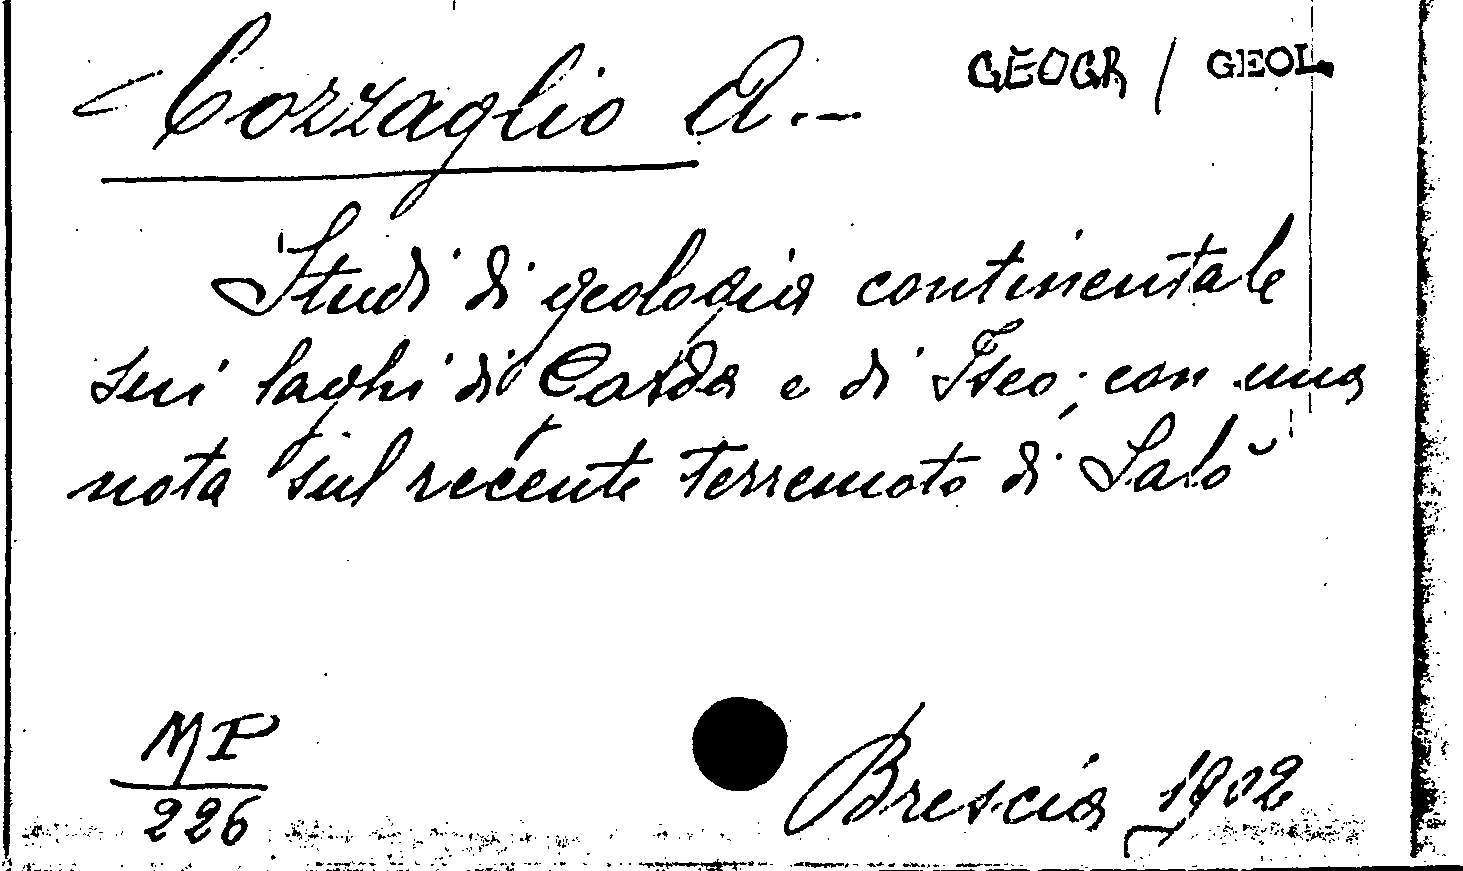 Cozzaglio A.- GEOGR / GEOL.
Studi di geologia continentale
sui laghi di Garda e di Iseo; con una
nota sul recente terremoto di Salò
MP
226
Brescia 1902